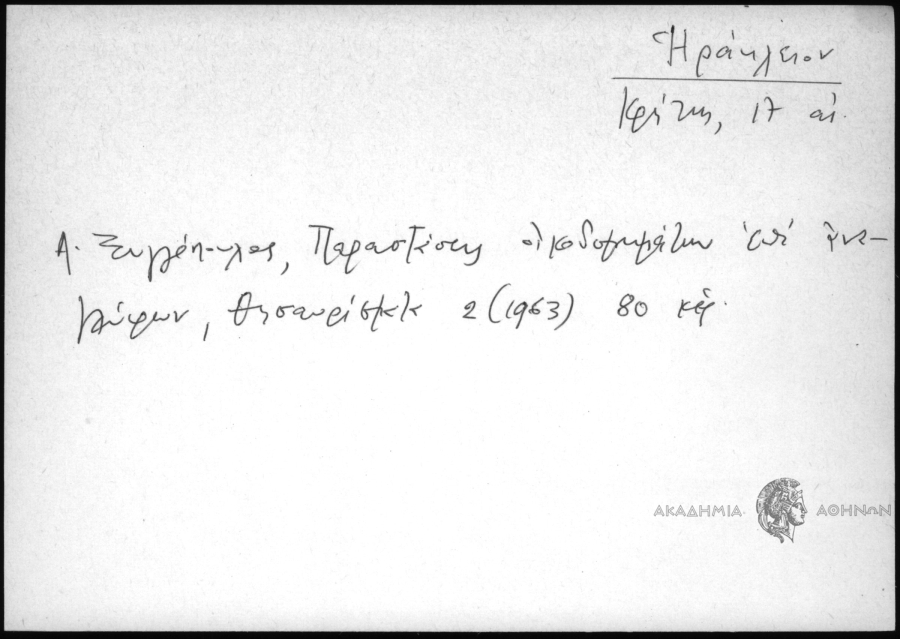 Ἡράκλειον
Κρήτης, 17 αἰ.
Α. Ξυγγόπουλος, Παραστάσεις οἰκοδομημάτων ἐπὶ ἀνα-
γλύφων, Θησαυρίσματα 2 (1963) 80 κἑ.
ΑΚΑΔΗΜΙΑ ΑΘΗΝΩΝ